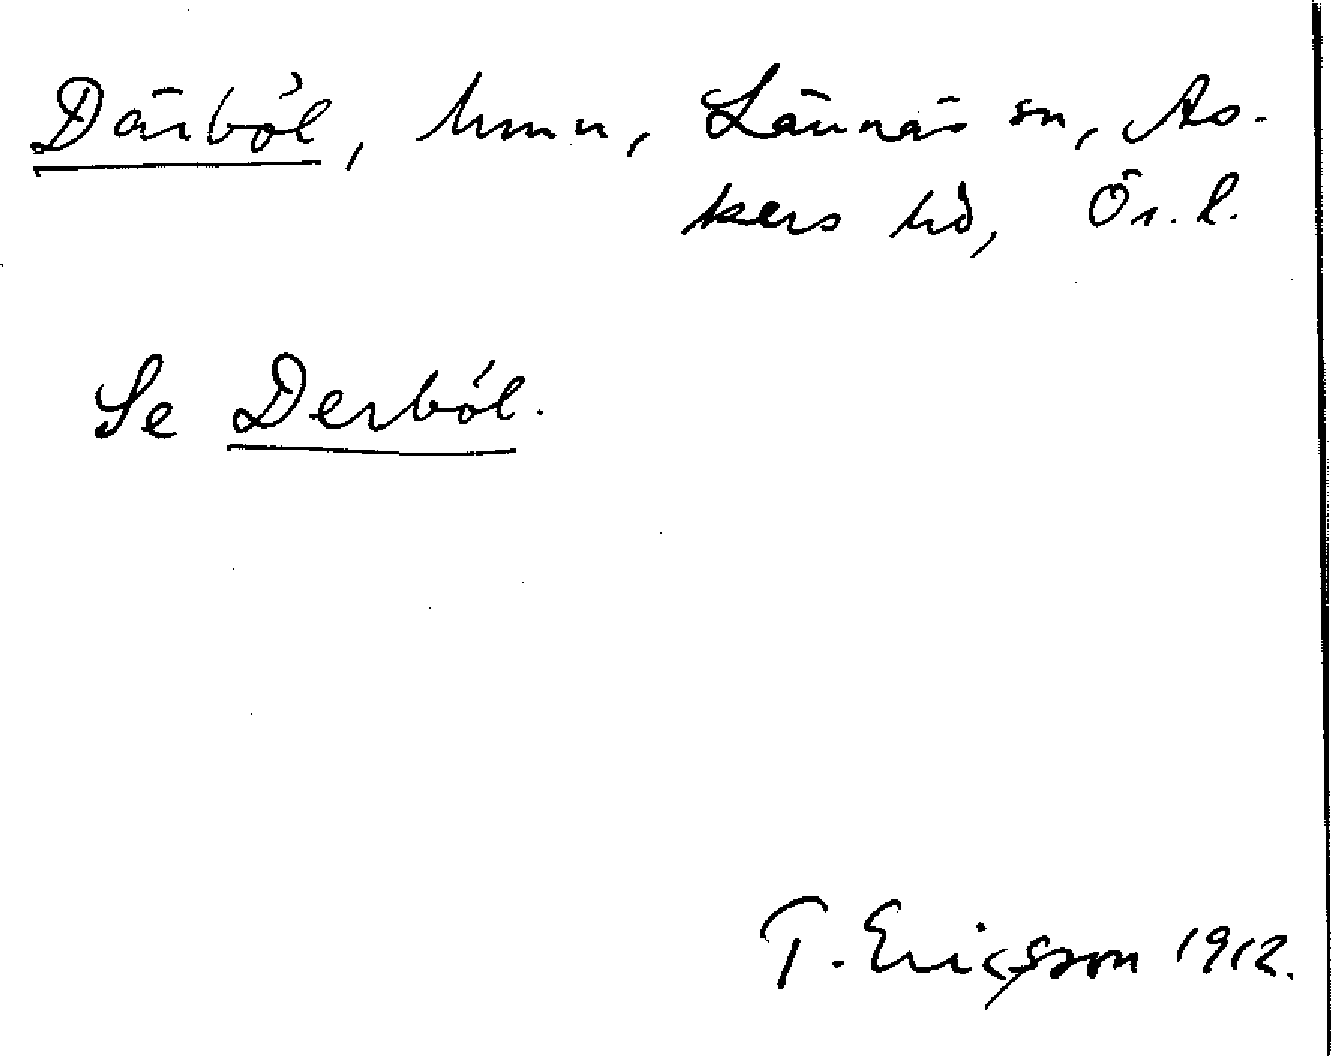 Därból, hmn, Lännäs sn, As-
kers hd, Ör. l.
Se Derból.
T. Ericsson 1912.